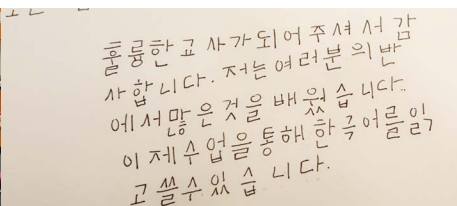 훌륭한 교사가 되어 주셔서 감
사합니다. 저는 여러분의 반
에서 많은 것을 배웠습니다.
이제 수업을 통해 한국어를 읽
고 쓸 수 있습니다.